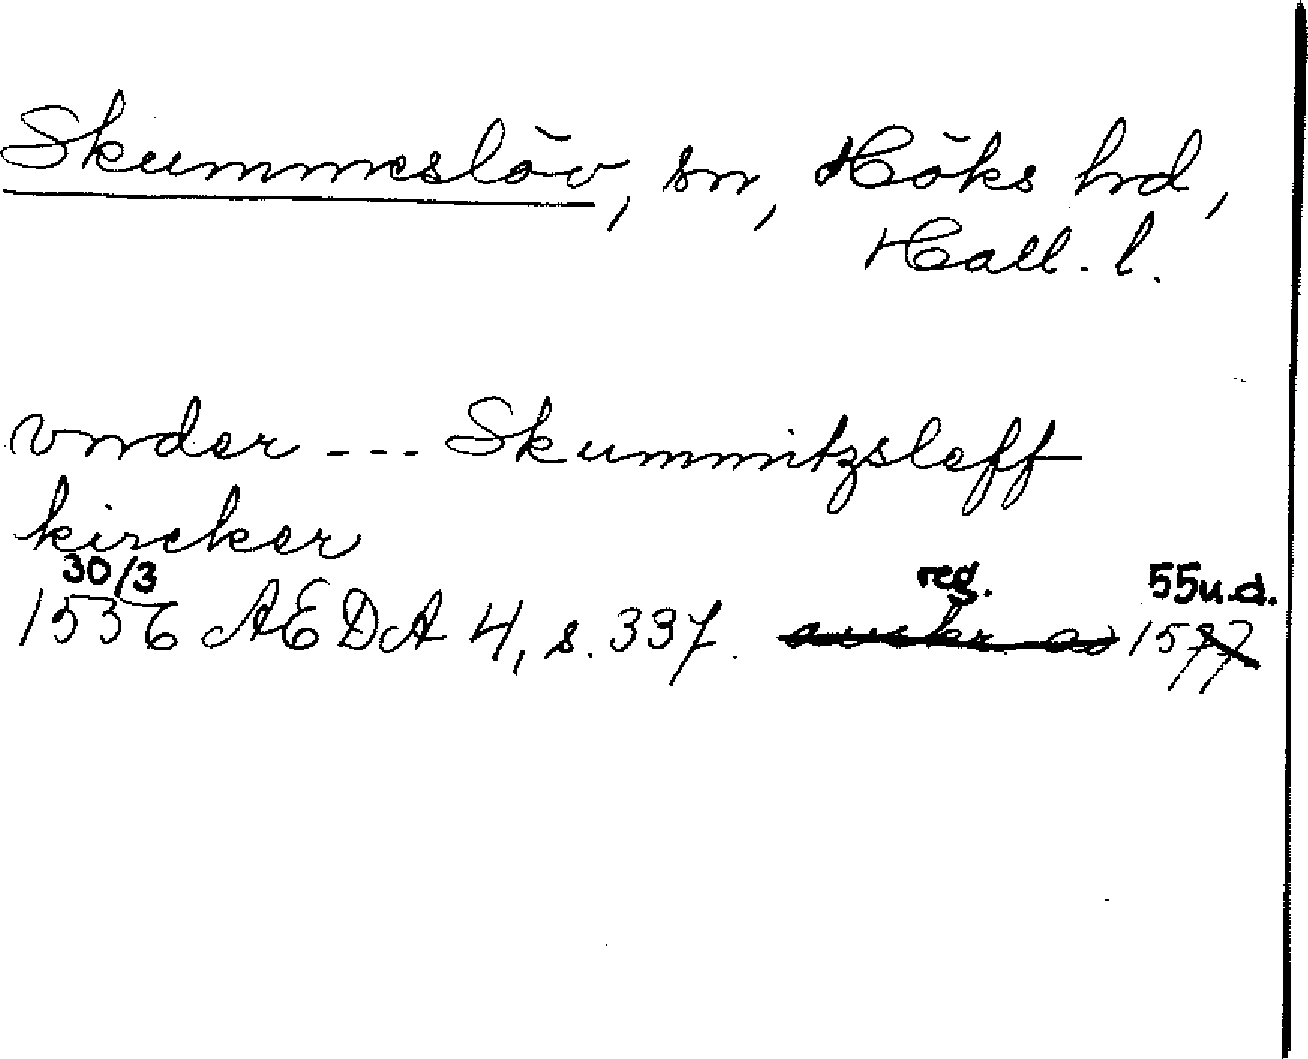 Skummeslöv, sn, Höks hd,
Hall. l.
vnder --- Skummitzsleff
kircker
30/3 reg. 55 u.d.
1536 AEDA 4, s. 337. 1577